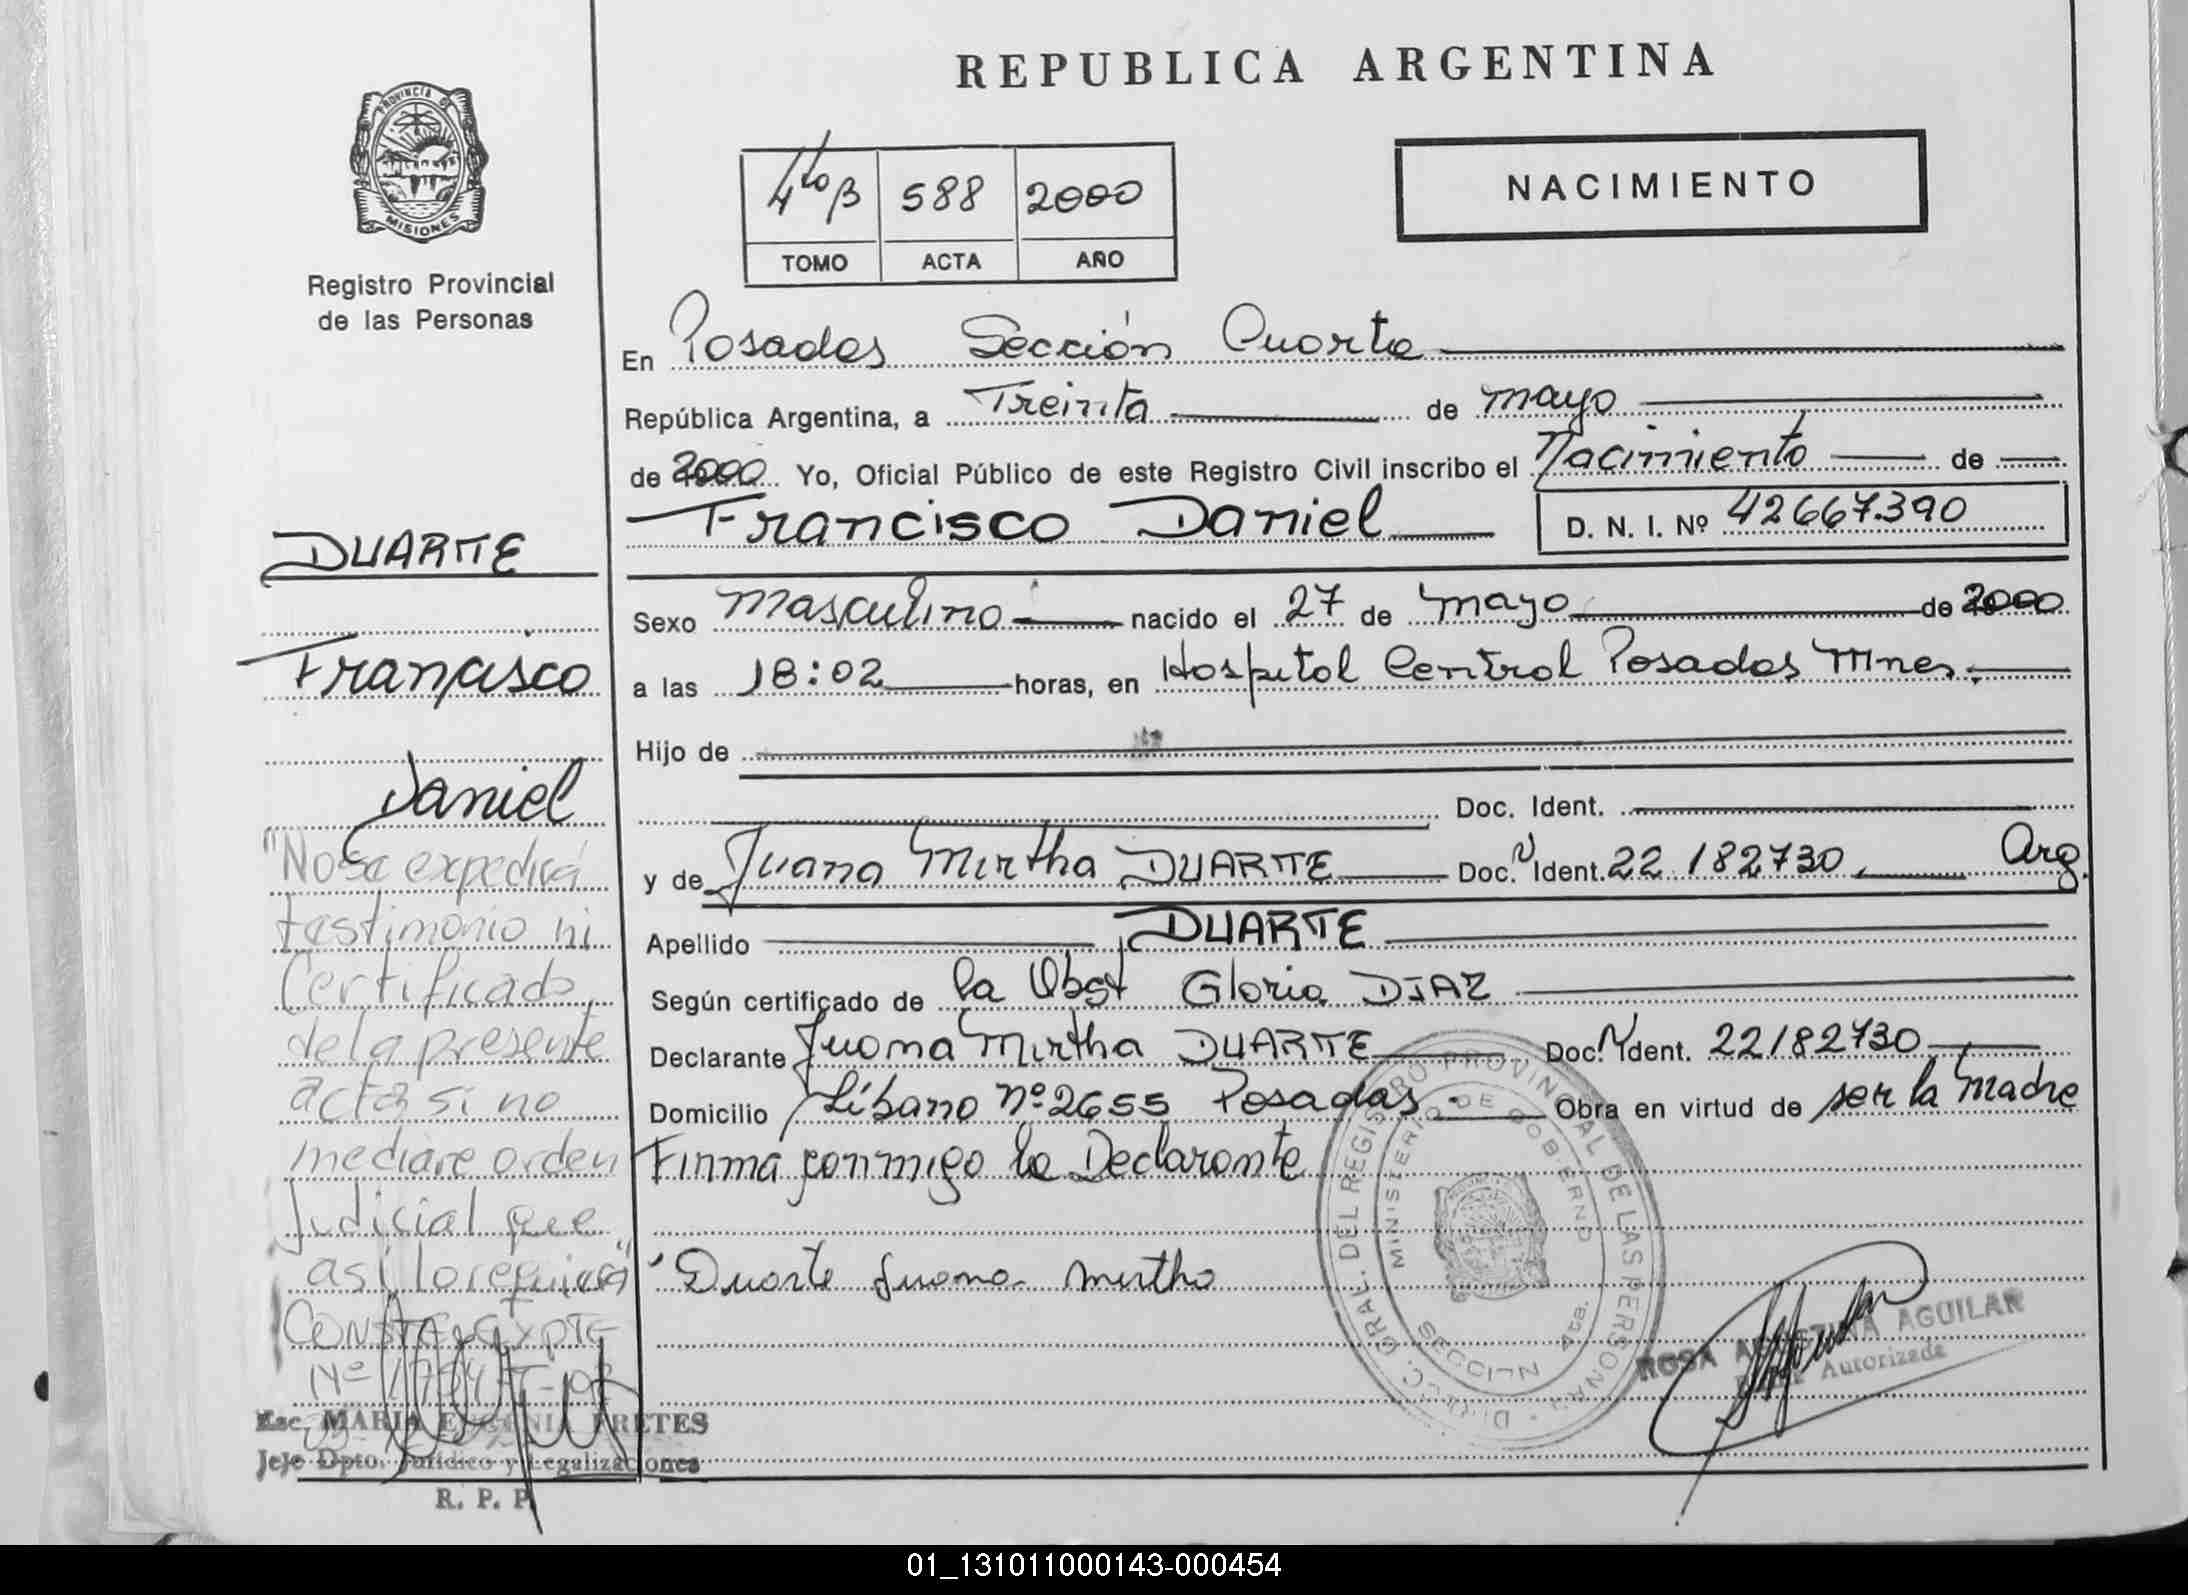 REPUBLICA ARGENTINA
PROVINCIA DE
MISIONES
Registro Provincial
de las Personas
4to B 588 2000
TOMO ACTA AÑO
NACIMIENTO
En Posadas Sección Cuarta
República Argentina, a Treinta de mayo
de 2000 Yo, Oficial Público de este Registro Civil inscribo el Nacimiento de
Francisco Daniel D. N. I. Nº 42667.390
Sexo Masculino nacido el 27 de mayo de 2000
a las 18:02 horas, en Hospital Central Posadas Mnes.
Hijo de
Doc. Ident.
y de Juana Mirtha DUARTE Doc. N Ident. 22.182730, Arg.
Apellido DUARTE
Según certificado de la Obst Gloria DIAZ
Declarante Juana Mirtha DUARTE Doc. N Ident. 22182730
Domicilio Líbano nº 2655 Posadas. Obra en virtud de ser la Madre
Firma conmigo la Declarante
Duarte Juana Mirtha
DUARTE
Francisco
Daniel
"No se expedirá
testimonio ni
Certificado
de la presente
acta si no
mediare orden
Judicial que
asi lo requiera"
CONSTA EXPTE
Nº
Esc. MARIA EUGENIA PRETES
Jefe Dpto. Jurídico y Legalizaciones
R. P. P.
DIRECC. GRAL. DEL REGISTRO PROVINCIAL DE LAS PERSONAS
MINISTERIO DE GOBIERNO
SECCION 4ta.
ROSA AGUSTINA AGUILAR
Autorizada
01_131011000143-000454